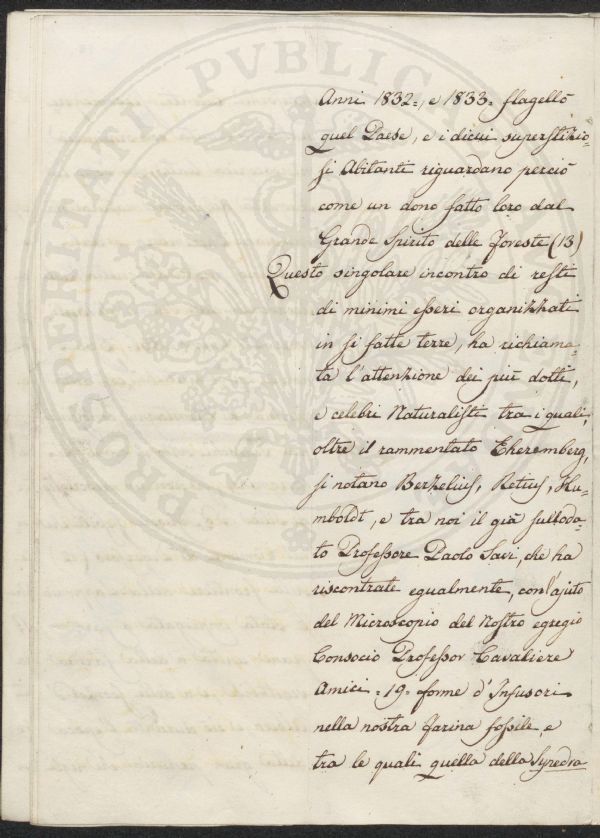 PROSPERITATI PVBLICAE
Anni 1832=, e 1833= flagellò
quel Paese, e i dicui superstizio=
si Abitanti riguardano perciò
come un dono fatto loro dal
Grande Spirito delle Foreste (13)
Questo singolare incontro di resti
di minimi esseri organizzati
in si fatte terre, ha richiama=
ta l'attenzione dei più dotti,
e celebri Naturalisti tra i quali,
oltre il rammentato Eheremberg,
si notano Berzelius, Retius, Hu=
mboldt, e tra noi il già sulloda=
to Professore Paolo Savi, che ha
riscontrate egualmente, con l'ajuto
del Microscopio del Nostro egregio
Consocio Professor Cavaliere
Amici = 19 = forme d'Infusori
nella nostra farina fossile, e
tra le quali quella della Syredra